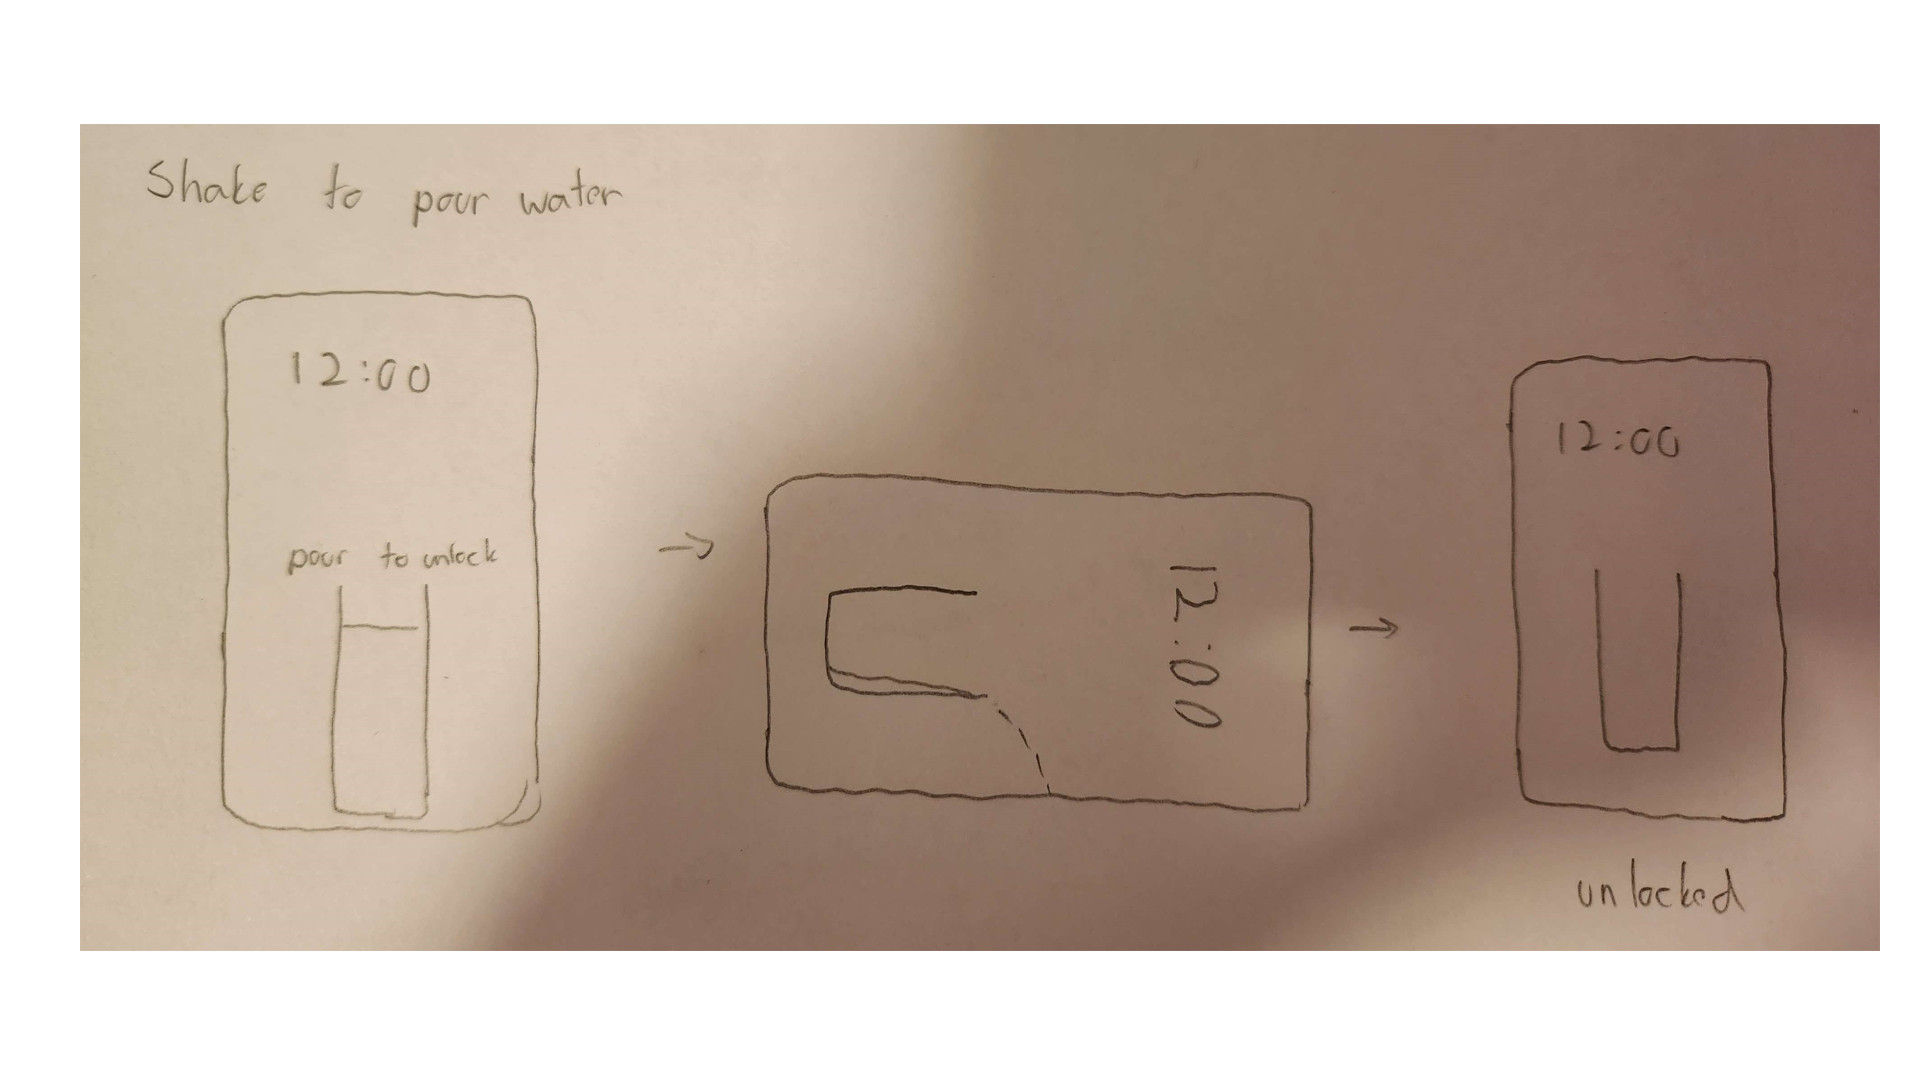 Shake to pour water
12:00
pour to unlock
12:00
12:00
unlocked